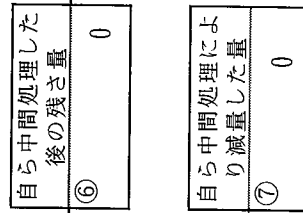 自ら中間処理した
後の残さ量
⑥ 0
自ら中間処理によ
り減量した量
⑦ 0